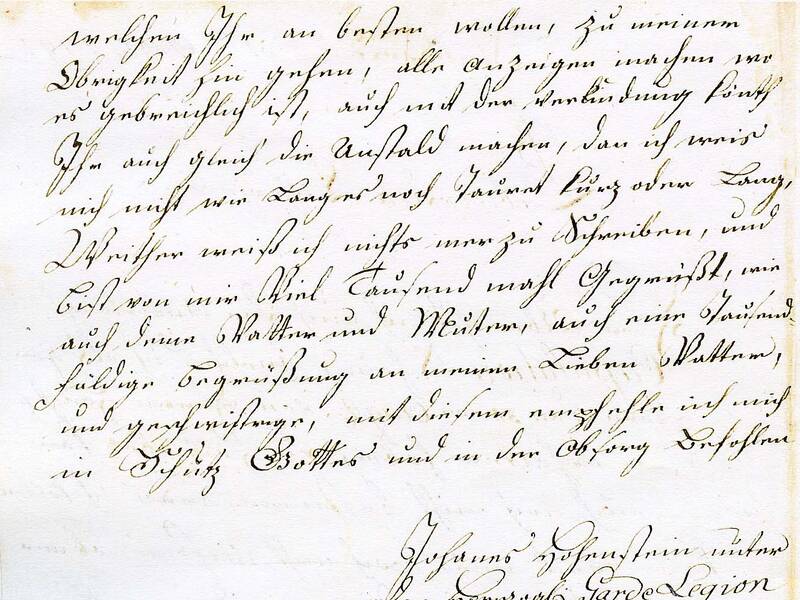 welchen Ihr an besten wollen, zu meiner
Obrigkeit hin gehen, alle anzeigen machen wo
es gebreichlich ist, auch mit der verkindung könth
Ihr auch gleich die Anstald machen, dan ich weis
nich nicht wie Lang es noch Tauret kurz oder Lang,
Weither weiß ich nichts mer zu Schreiben, und
bist von mir Viel Tausend mahl Gegrüßt, wie
auch deine Vatter und Muter, auch eine Tausend-
fäldige begrüßung an meinen Lieben Vatter,
und geschwistrige, mit diesem empfehle ich mich
in Schutz Gottes und in der Obsorg Befohlen
Johanes Hohenstein unter
Herzogl. Garde Legion